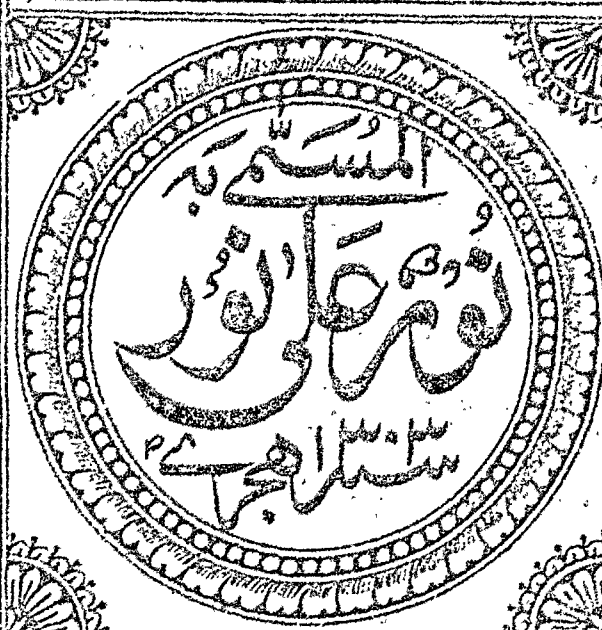 المُسَمّٰی بَہ
نُورٌ عَلٰی نُوْر
سنہ ۱۳۰۳ ہجری